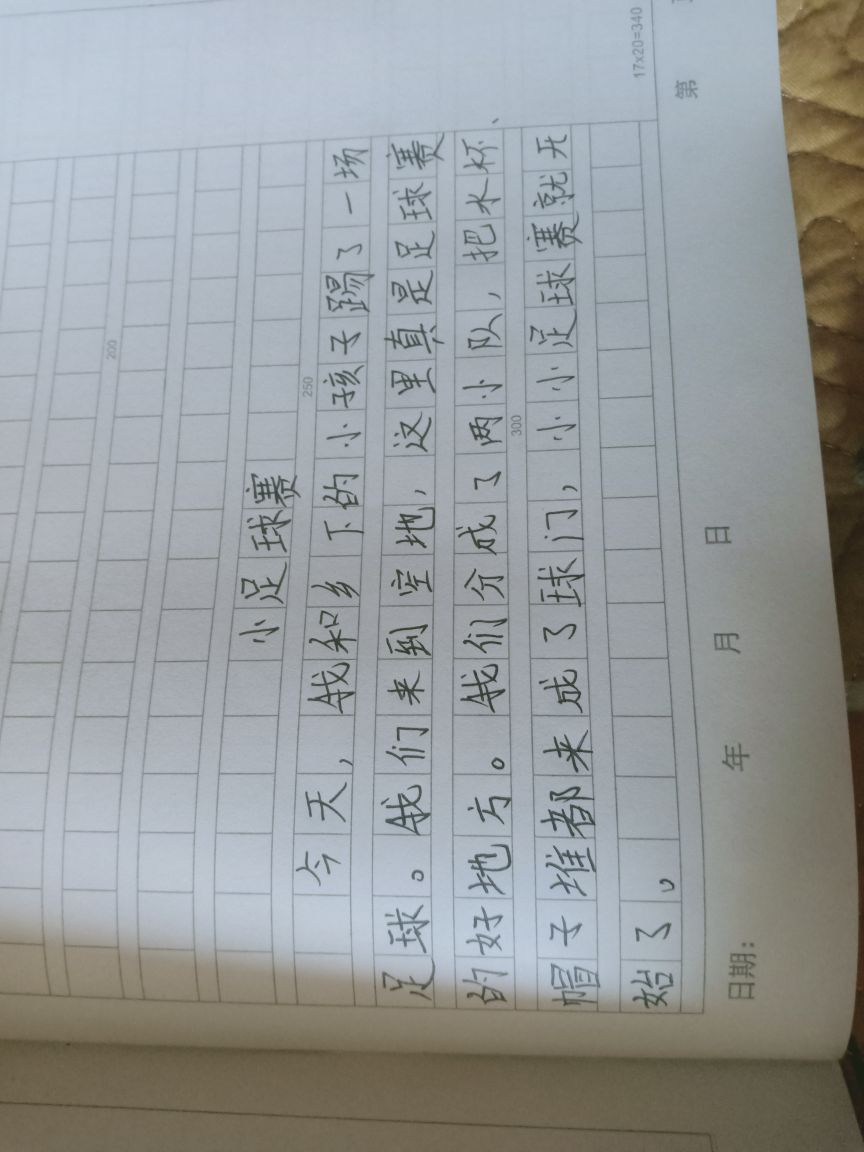 200
250
小足球赛
今天，我和乡下的小孩子踢了一场
足球。我们来到空地，这里真是足球赛
的好地方。我们分成了两小队，把水杯、
300
帽子堆都来成了球门，小小足球赛就开
始了。
17x20=340
日期： 年 月 日
第